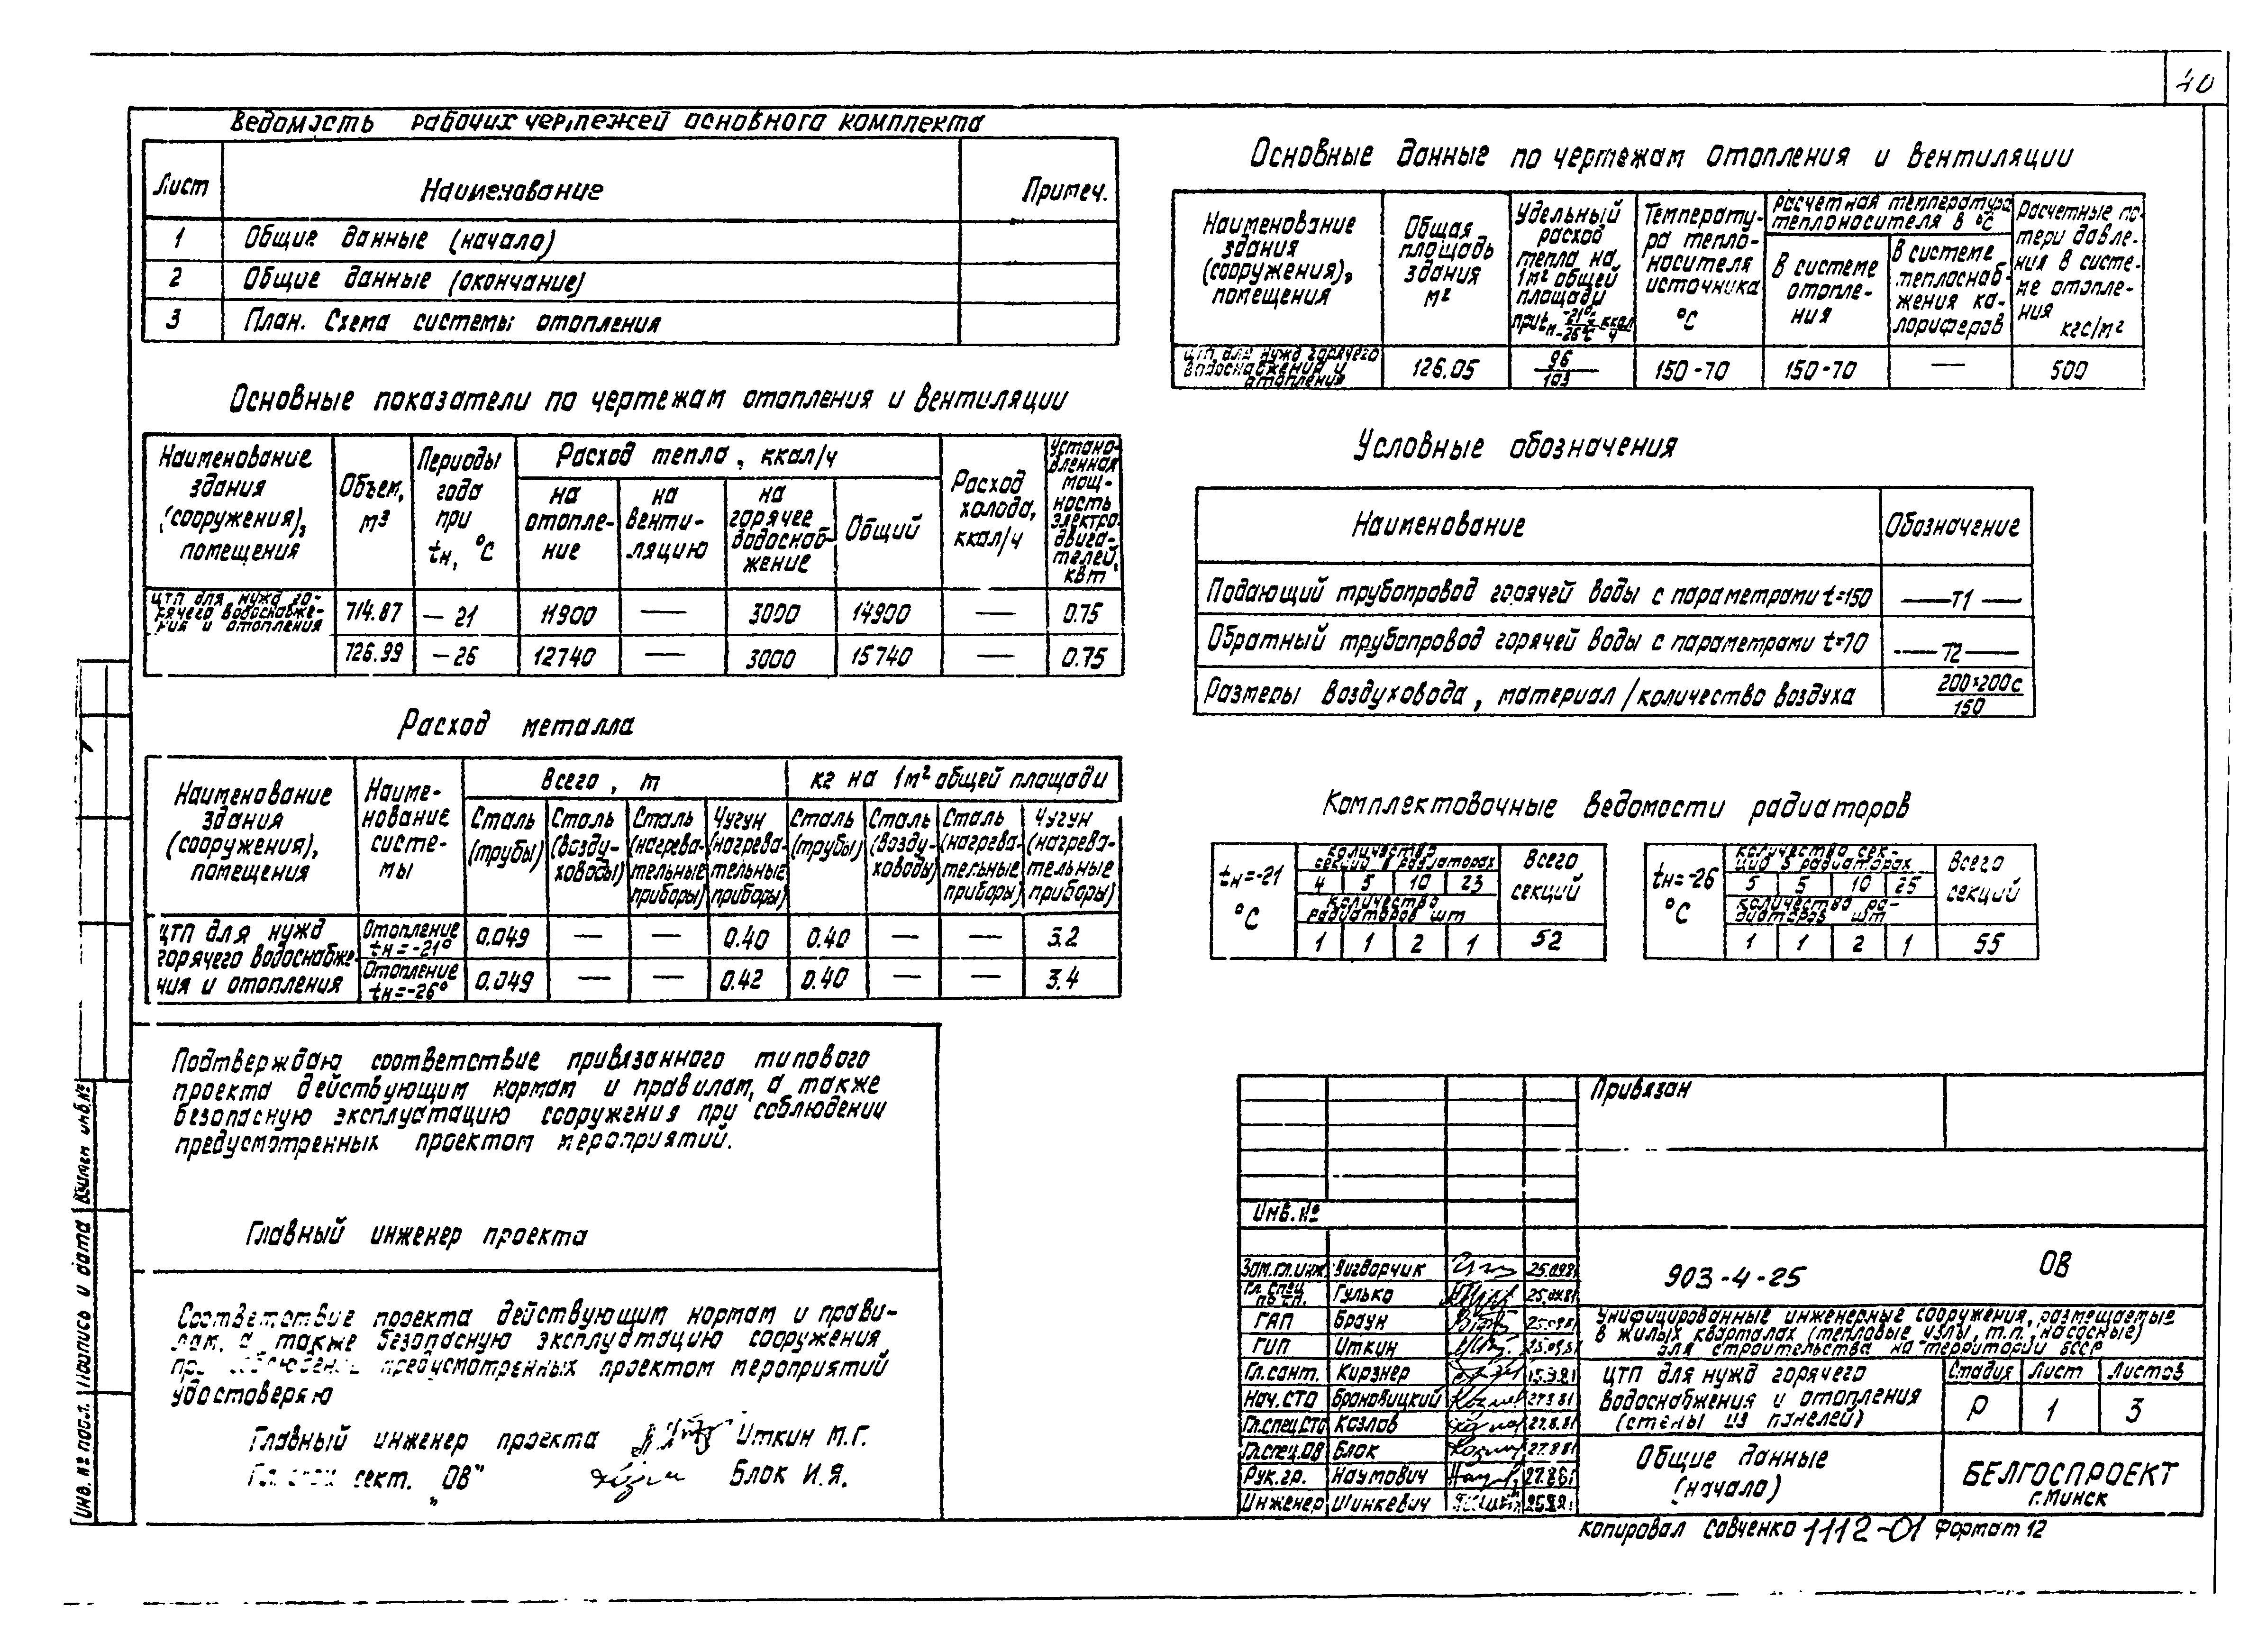 40
Ведомость рабочих чертежей основного комплекта
Лист Наименование Примеч.
1 Общие данные (начало)
2 Общие данные (окончание)
3 План. Схема системы отопления
Основные показатели по чертежам отопления и вентиляции
Наименование здания (сооружения), помещения
Объем, м³
Периоды года при tн, °С
Расход тепла, ккал/ч
на отопление
на вентиляцию
на горячее водоснабжение
Общий
Расход холода, ккал/ч
Установленная мощность электродвигателей, квт
ЦТП для нужд горячего водоснабжения и отопления
714.87 — 21 11900 — 3000 14900 — 0.75
726.99 — 26 12740 — 3000 15740 — 0.75
Расход металла
Наименование здания (сооружения), помещения
Наименование системы
Всего, т
кг на 1м² общей площади
Сталь (трубы)
Сталь (воздуховоды)
Сталь (нагревательные приборы)
Чугун (нагревательные приборы)
Сталь (трубы)
Сталь (воздуховоды)
Сталь (нагревательные приборы)
Чугун (нагревательные приборы)
ЦТП для нужд горячего водоснабжения и отопления
Отопление tн=-21° 0.049 — — 0.40 0.40 — — 3.2
Отопление tн=-26° 0.049 — — 0.42 0.40 — — 3.4
Подтверждаю соответствие привязанного типового
проекта действующим нормам и правилам, а также
безопасную эксплуатацию сооружения при соблюдении
предусмотренных проектом мероприятий.
Главный инженер проекта
Соответствие проекта действующим нормам и прави-
лам, а также безопасную эксплуатацию сооружения
при соблюдении предусмотренных проектом мероприятий
удостоверяю
Главный инженер проекта Иткин М.Г.
сект. „ОВ" Блок И.Я.
Инв. № подл. Подпись и дата Взамен инв.№
Основные данные по чертежам отопления и вентиляции
Наименование здания (сооружения), помещения
Общая площадь здания м²
Удельный расход тепла на 1м² общей площади при tн -21°С/-26°С ккал/ч
Температура теплоносителя источника °С
Расчетная температура теплоносителя в °С
В системе отопления
В системе теплоснабжения калориферов
Расчетные потери давления в системе отопления кгс/м²
ЦТП для нужд горячего водоснабжения и отопления
126.05 96/103 150-70 150-70 — 500
Условные обозначения
Наименование Обозначение
Подающий трубопровод горячей воды с параметрами t=150 —Т1—
Обратный трубопровод горячей воды с параметрами t=70 —Т2—
Размеры воздуховода, материал/количество воздуха 200×200с/150
Комплектовочные ведомости радиаторов
tн=-21 °С
Количество секций в радиаторах
4 5 10 23
Количество радиаторов шт
1 1 2 1
Всего секций
52
tн=-26 °С
Количество секций в радиаторах
5 5 10 25
Количество радиаторов шт
1 1 2 1
Всего секций
55
Привязан
Инв.№
Зам.гл.инж. Вигдорчик
Гл. спец. Гулько
ГАП Браун
ГИП Иткин
Гл.сант. Кирзнер
Нач.СТО Броновицкий
Гл.спец.СТО Козлов
Гл.спец.ОВ Блок
Рук.гр. Наумович
Инженер Шинкевич
903-4-25 ОВ
Унифицированные инженерные сооружения, размещаемые
в жилых кварталах (тепловые узлы, т.п., насосные)
для строительства на территории БССР
ЦТП для нужд горячего
водоснабжения и отопления
(стены из панелей)
Стадия Лист Листов
Р 1 3
Общие данные
(начало)
БЕЛГОСПРОЕКТ
г.Минск
Копировал Савченко 1112-01 Формат 12